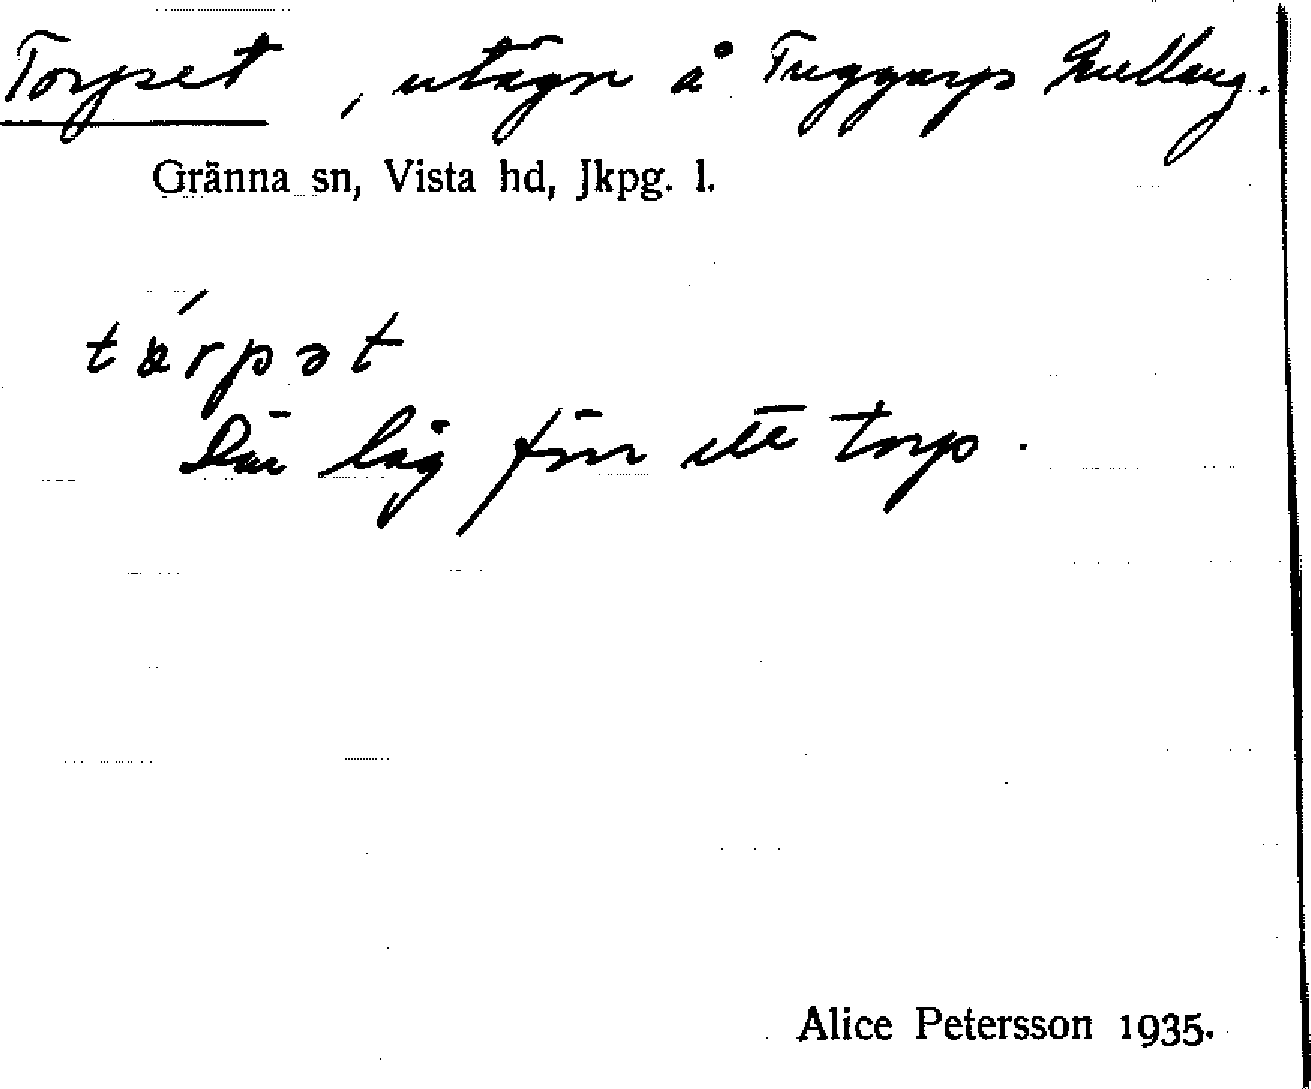 Torpet, utägn å Truggarps Mellang.
Gränna sn, Vista hd, Jkpg. l.
tárpət
Där låg förr ett torp.
Alice Petersson 1935.